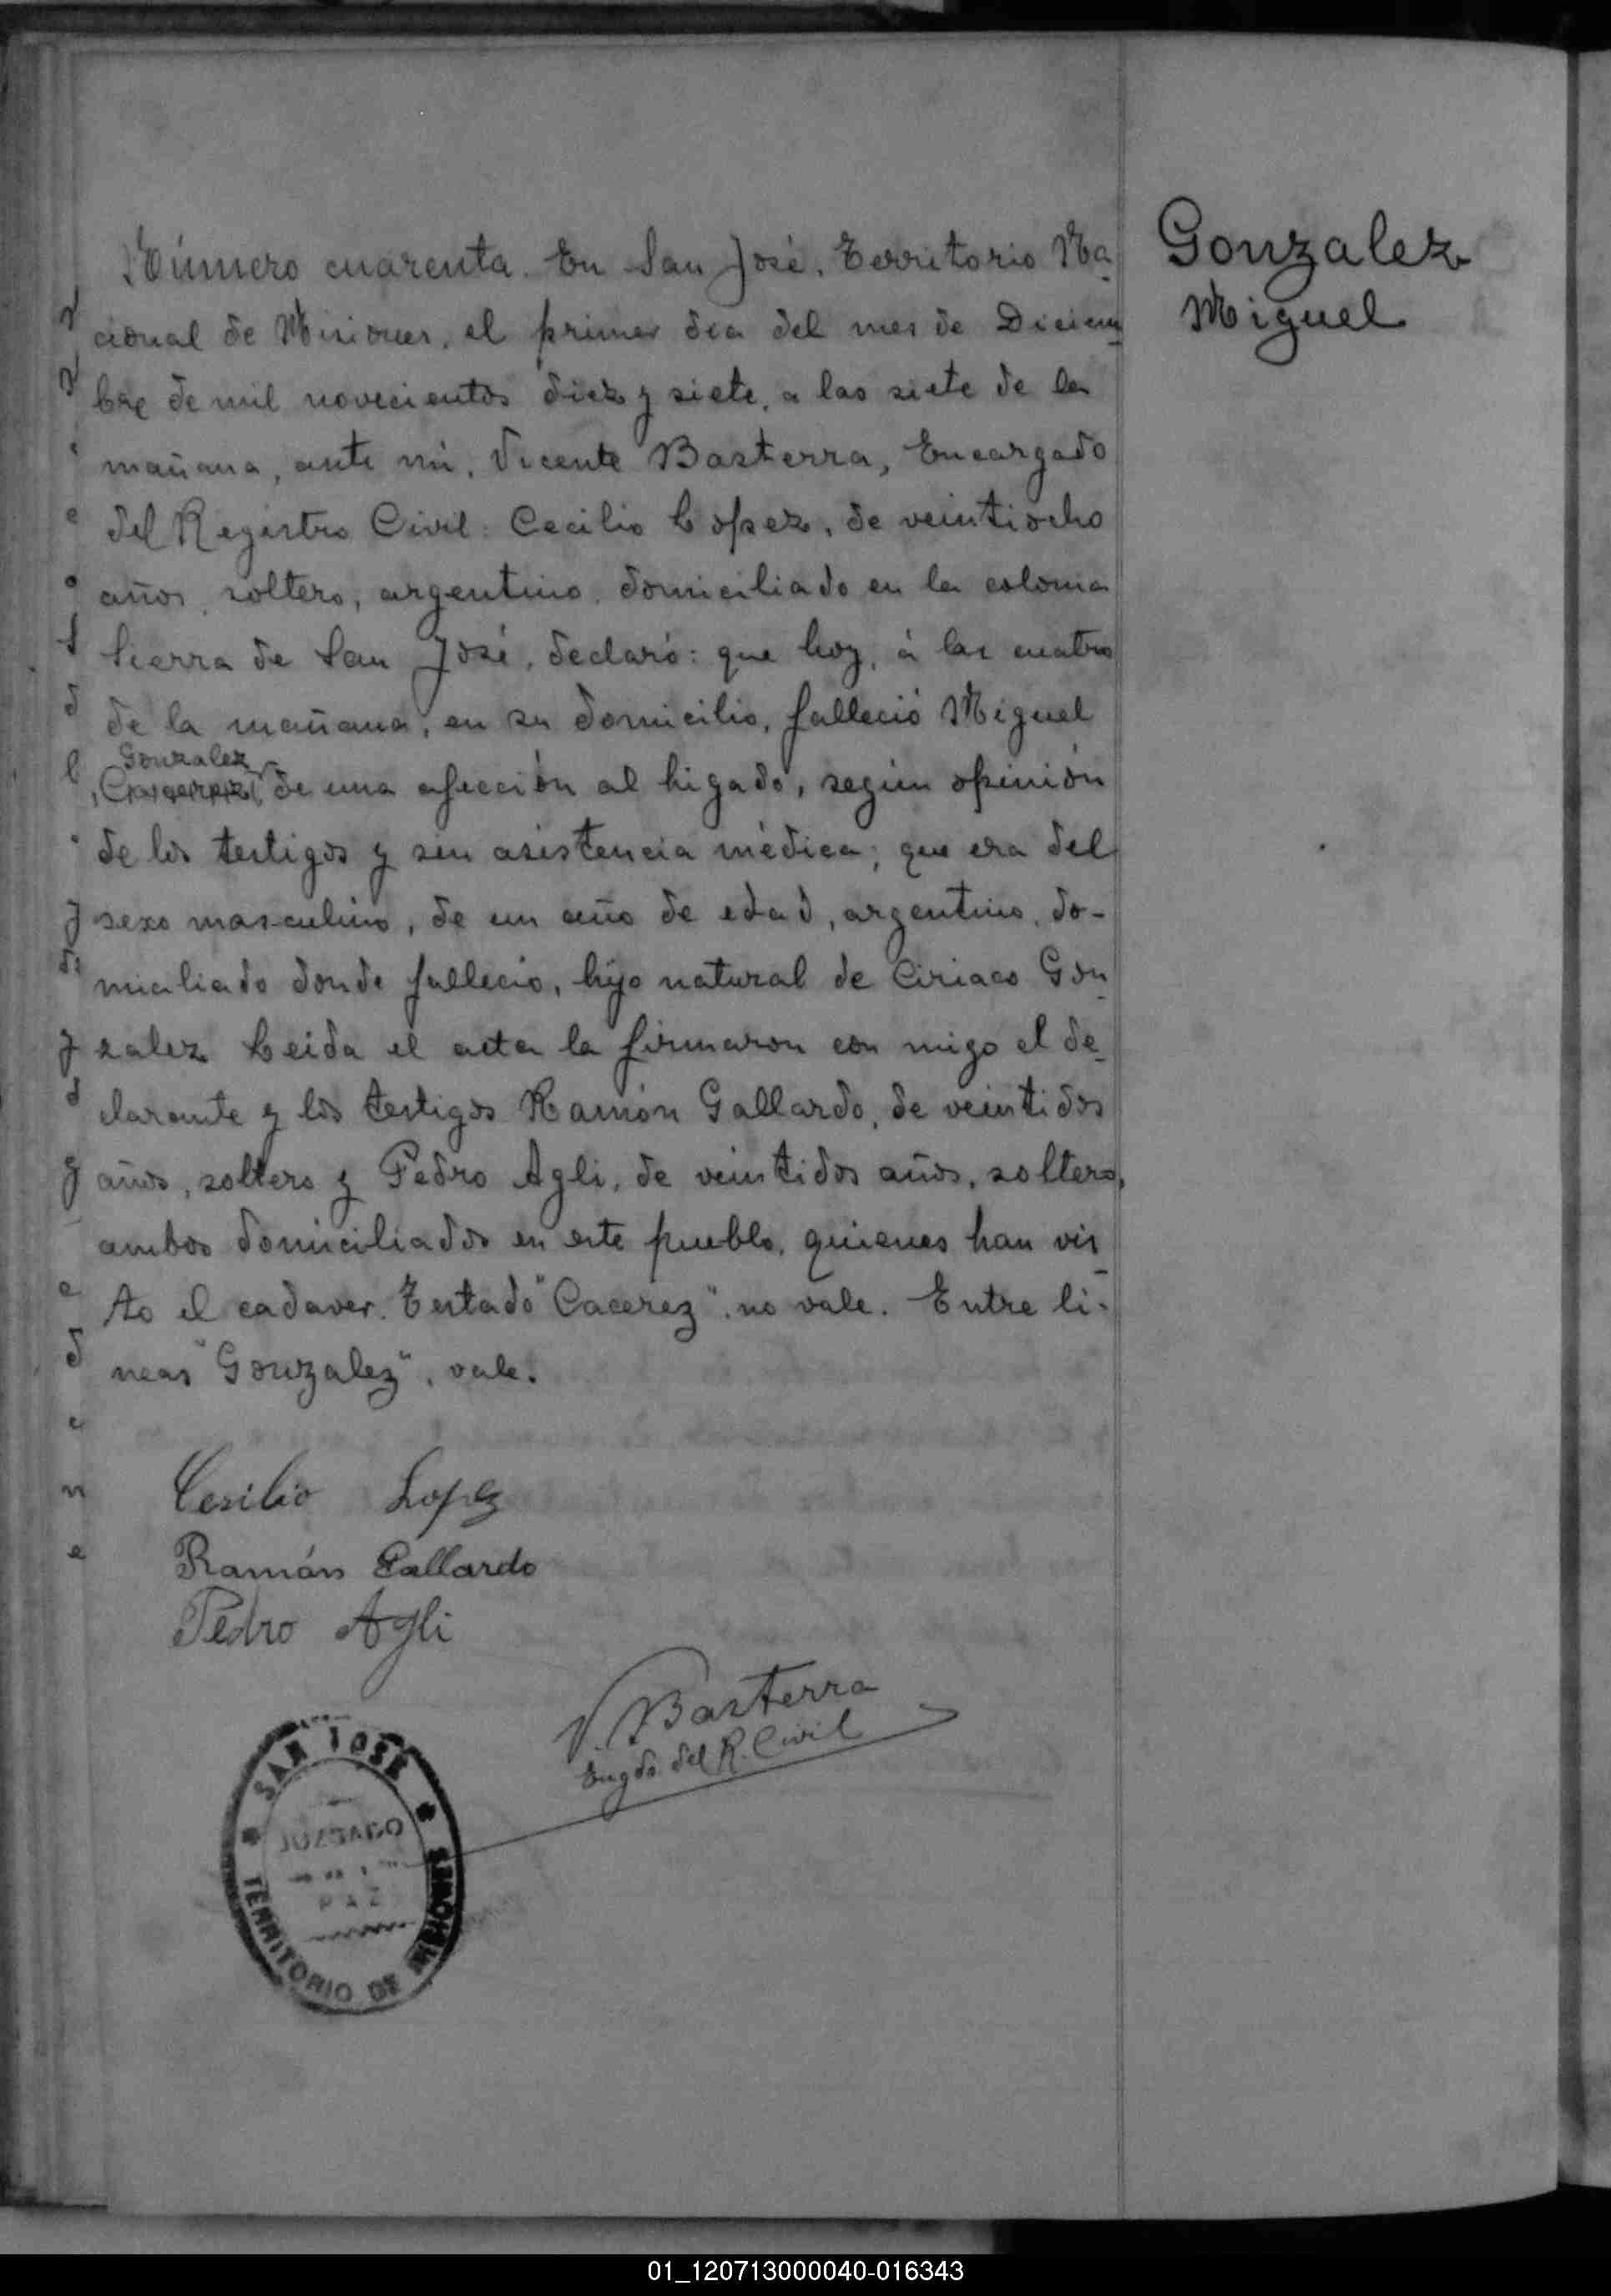 Número cuarenta. En San José, Territorio Na-
cional de Misiones, el primer dia del mes de Diciem-
bre de mil novecientos diez y siete, a las siete de la
mañana, ante mi, Vicente Basterra, Encargado
del Registro Civil: Cecilio Lopez, de veintiocho
años, soltero, argentino, domiciliado en la colonia
Sierra de San José, declaró: que hoy, á las cuatro
de la mañana, en su domicilio, falleció Miguel
Gonzalez
Cacerez, de una afección al higado, según opinión
de los testigos y sin asistencia médica; que era del
sexo masculino, de un año de edad, argentino, do-
miciliado donde falleció, hijo natural de Ciriaco Gon-
zalez. Leida el acta la firmaron con migo el de-
clarante y los testigos Ramón Gallardo, de veintidos
años, soltero y Pedro Agli, de veintidos años, soltero,
ambos domiciliados en este pueblo, quienes han vis-
to el cadaver. Testado "Cacerez". no vale. Entre li-
neas "Gonzalez", vale.
Cesilio Lopez
Ramón Gallardo
Pedro Agli
V. Basterra
Engdo del R. Civil
SAN JOSE
JUZGADO
PAZ
TERRITORIO DE MISIONES
Gonzalez
Miguel
01_120713000040-016343